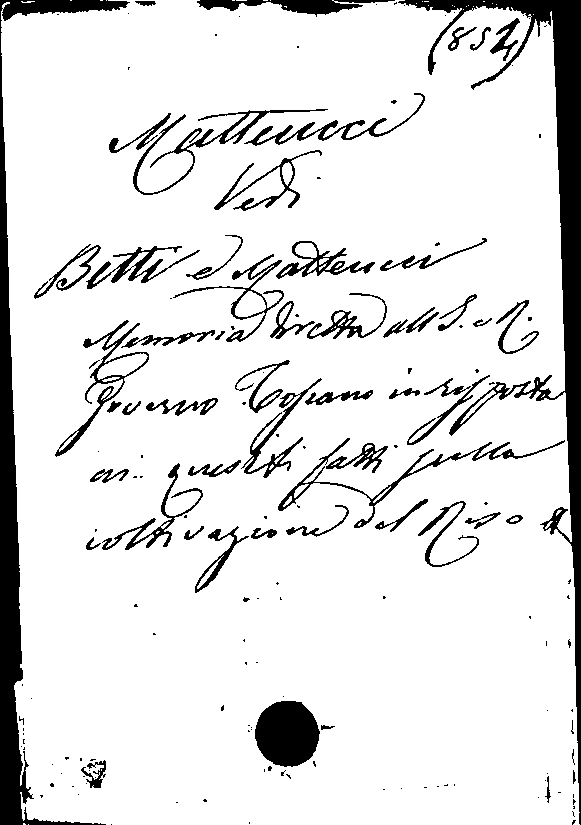 (854)
Matteucci
Vedi
Betti e Matteucci
Memoria diretta all I. e R.
Governo Toscano in risposta
ai quesiti fatti sulla
coltivazione del Riso